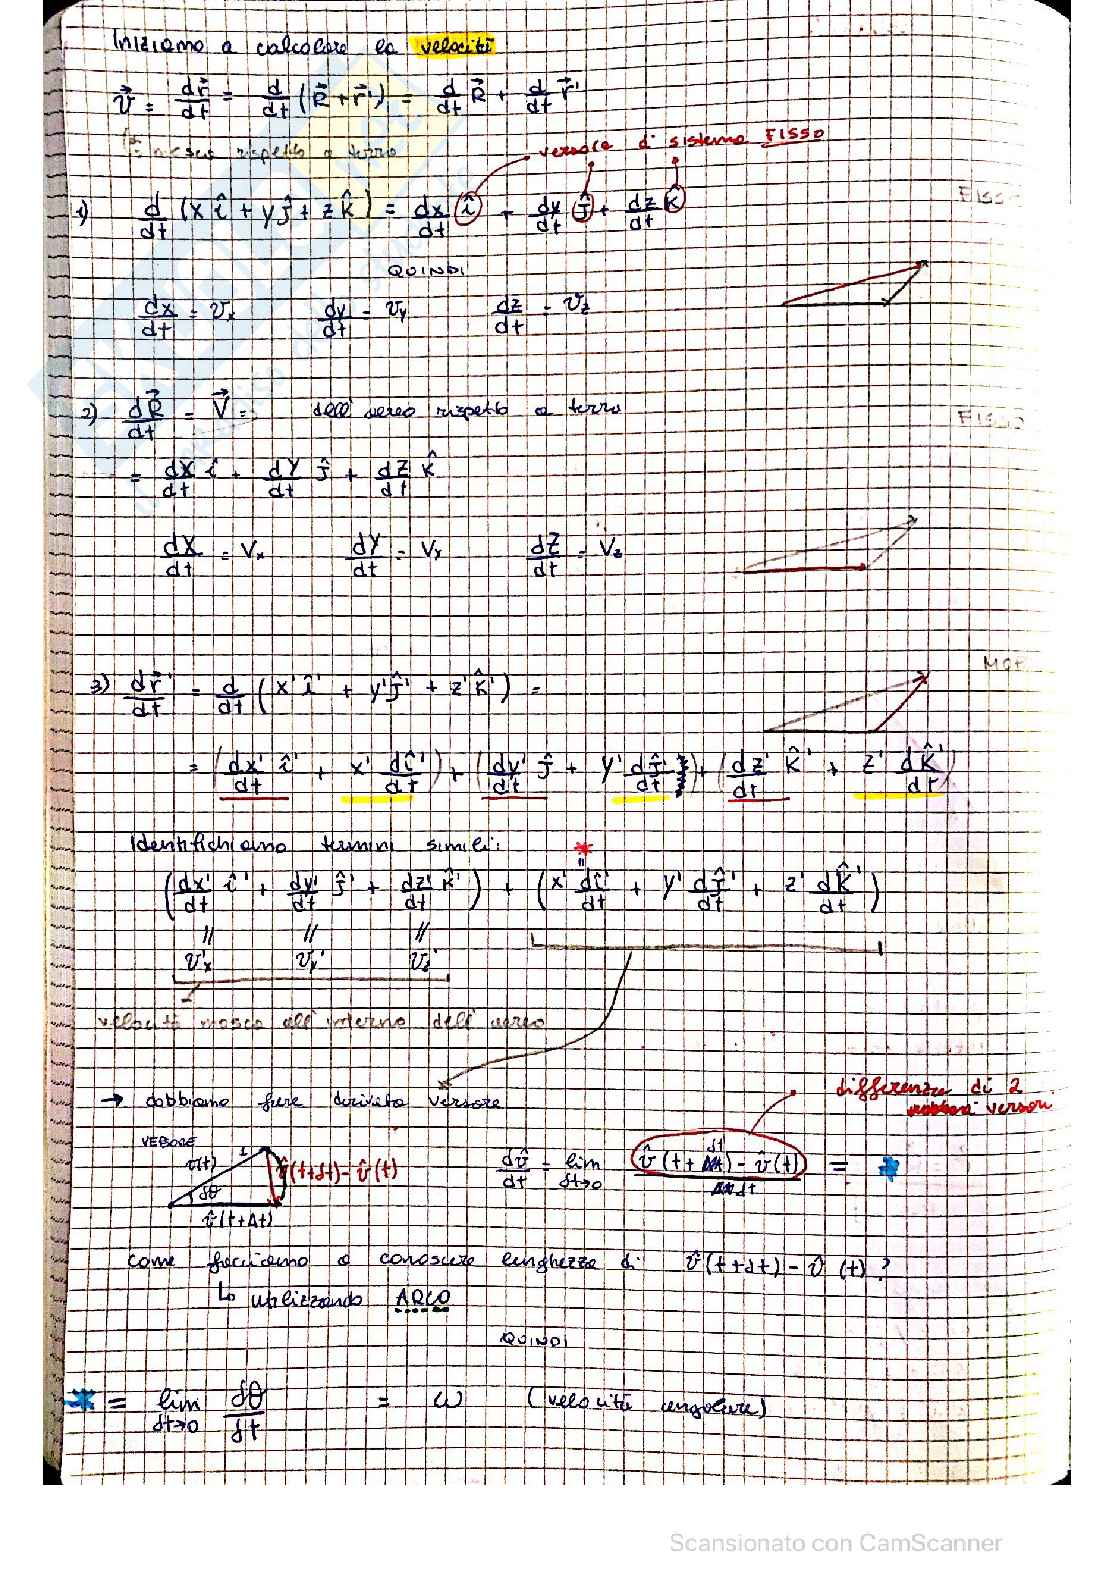 Iniziamo a calcolare la velocità
v⃗ = dr⃗/dt = d/dt (R⃗ + r⃗') = d/dt R⃗ + d/dt r⃗'
mosca rispetto a terra
versore di sistema FISSO
1) d/dt (x î + y ĵ + z k̂) = dx/dt î + dy/dt ĵ + dz/dt k̂
FISSO
QUINDI
dx/dt = vx dy/dt = vy dz/dt = vz
2) dR⃗/dt = V⃗ = dell'aereo rispetto a terra
FISSO
= dX/dt î + dY/dt ĵ + dZ/dt k̂
dX/dt = Vx dY/dt = Vy dZ/dt = Vz
MOT
3) dr⃗'/dt = d/dt (x' î' + y' ĵ' + z' k̂') =
= (dx'/dt î' + x' dî'/dt) + (dy'/dt ĵ + y' dĵ/dt) + (dz'/dt k̂' + z' dk̂'/dt)
Identifichiamo termini simili:
*
(dx'/dt î' + dy'/dt ĵ' + dz'/dt k̂') + (x' dî'/dt + y' dĵ'/dt + z' dk̂'/dt)
v'x vy' vz'
velocità mosca all'interno dell'aereo
differenza di 2
versori
→ dobbiamo fare derivata versore
VERSORE
v(t) 1
dθ
v̂(t+dt) - v̂(t)
v̂(t+Δt)
dv̂/dt = lim dt→0 (v̂(t+dt) - v̂(t))/dt = *
come facciamo a conoscere lunghezza di v̂(t+dt) - v̂(t)?
↳ utilizzando ARCO
QUINDI
* = lim dt→0 dθ/dt = ω (velocità angolare)
Scansionato con CamScanner